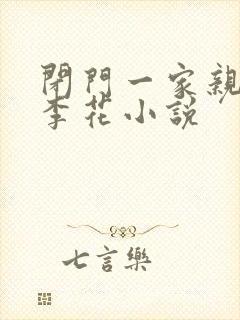 閉門一家親
李花小說
七言樂